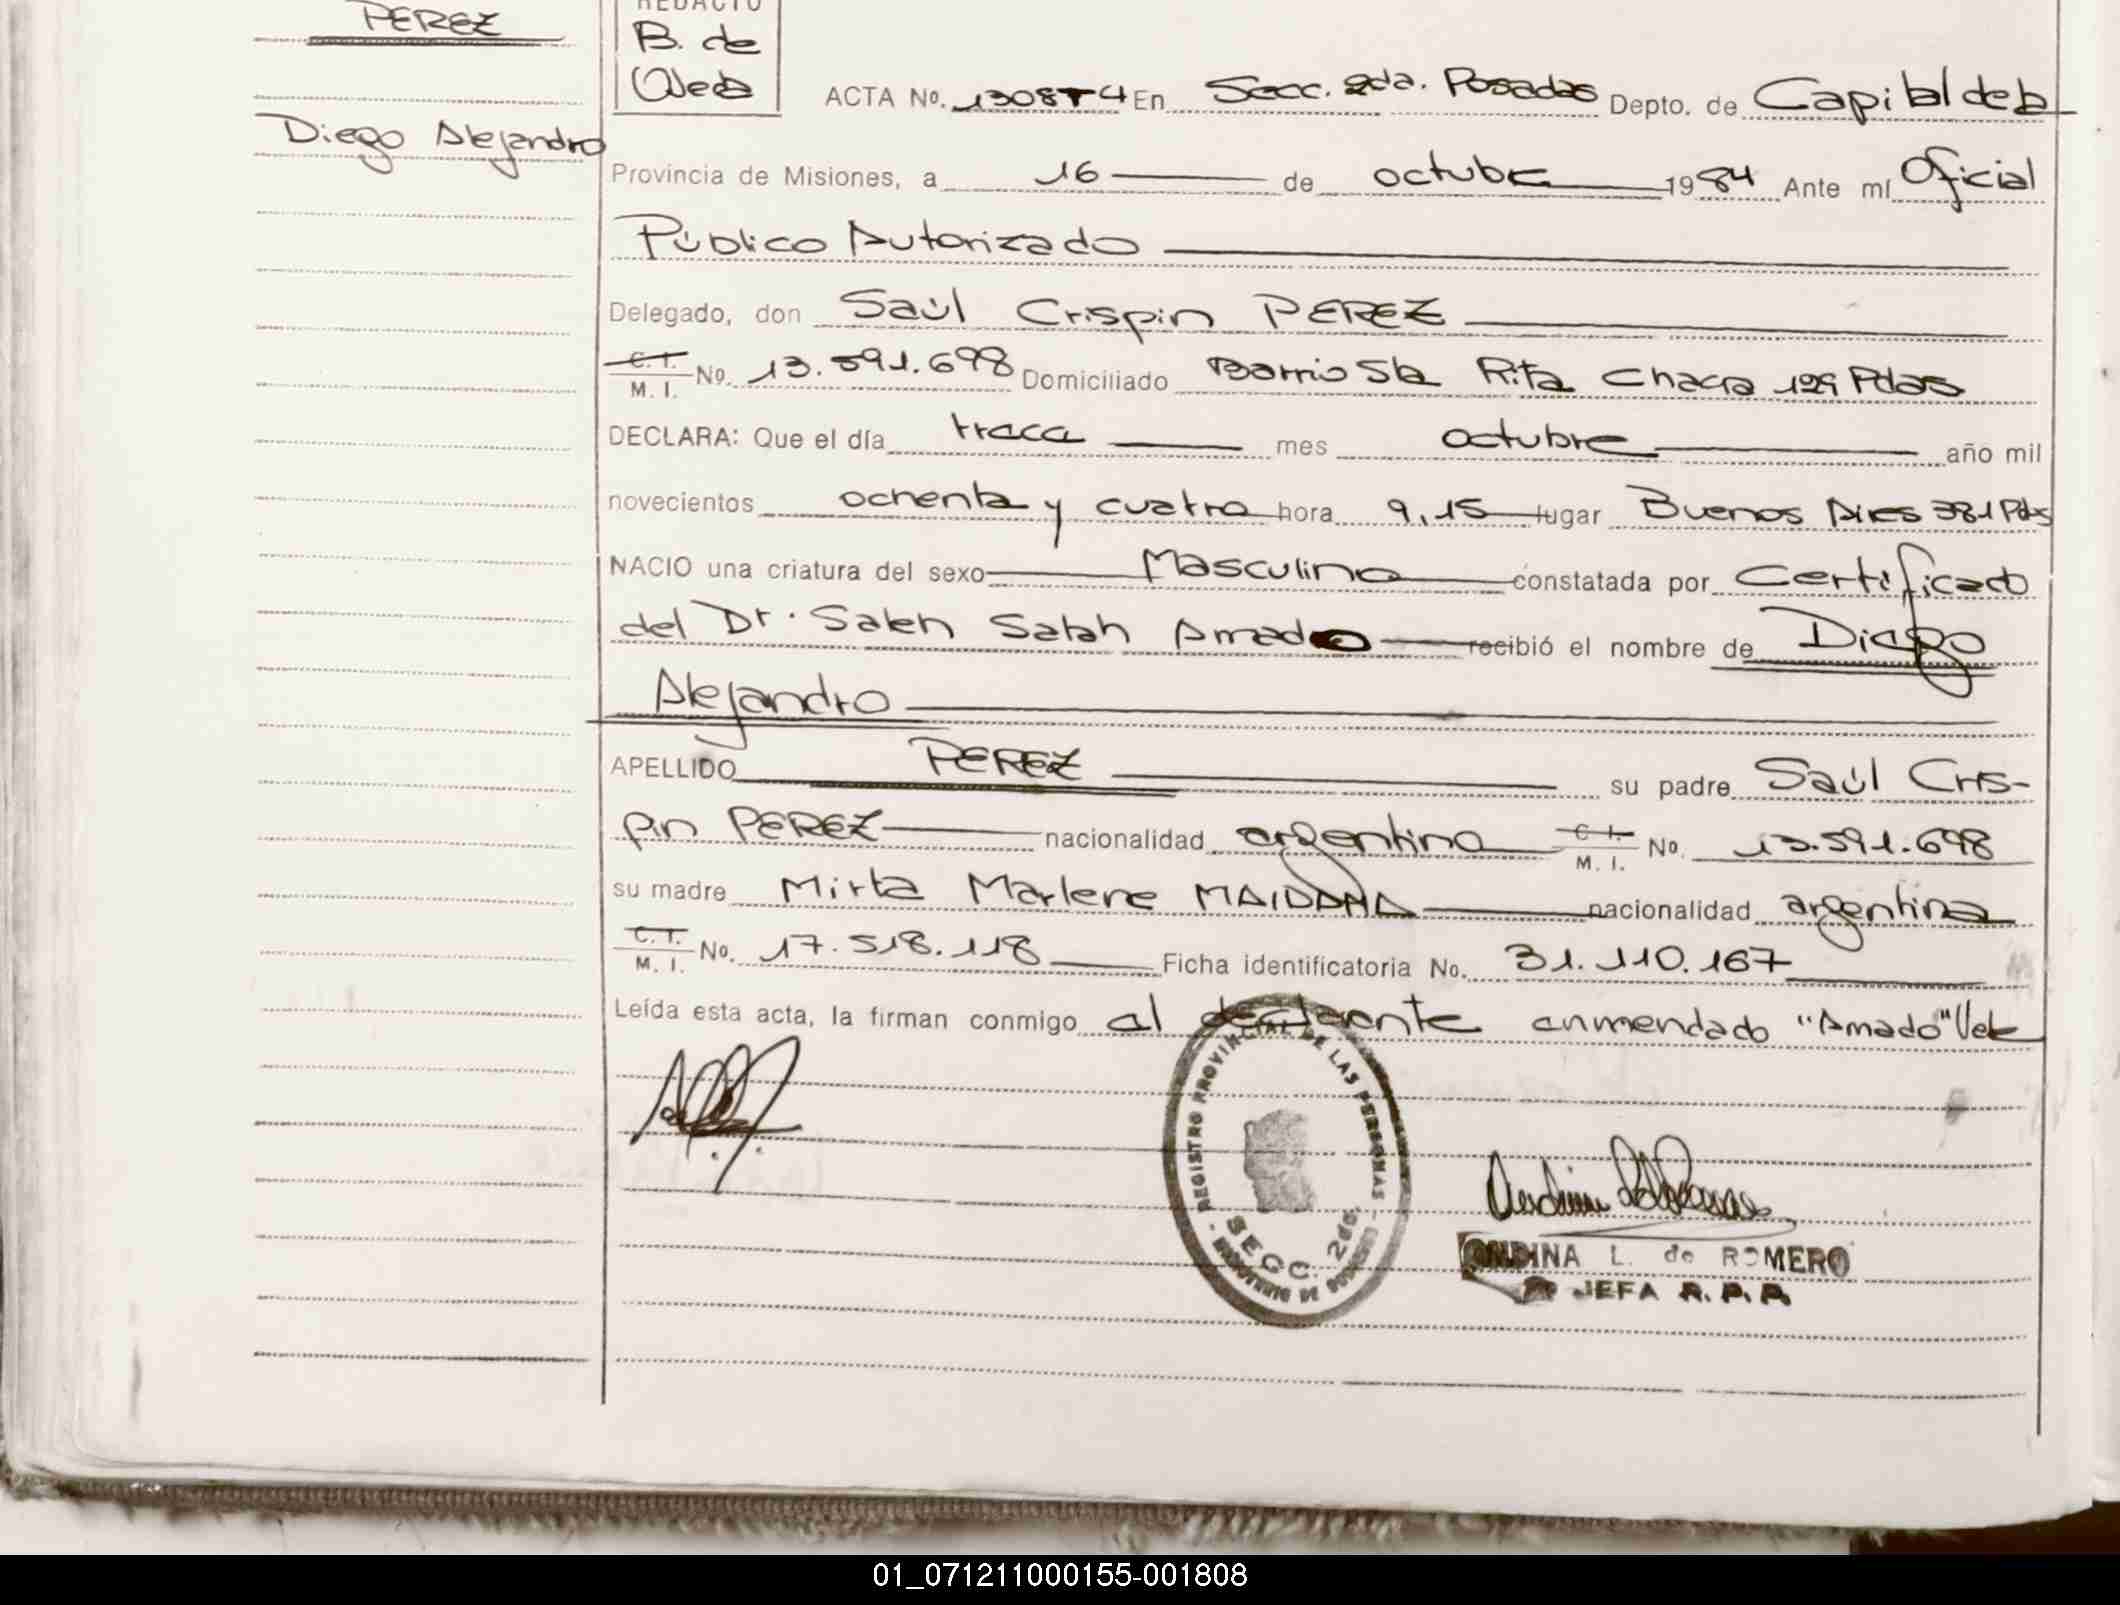 PEREZ
Diego Alejandro
REDACTO
B. de
Ojeda
ACTA No. 130874 En Secc. 2da. Posadas Depto. de Capital de la
Provincia de Misiones, a 16 de octubre 1984 Ante mí Oficial
Público Autorizado
Delegado, don Saúl Crispin PEREZ
C. I. M. I. No. 13.591.698 Domiciliado Barrio Sta Rita Chacra 129 Pdas
DECLARA: Que el día trece mes octubre año mil
novecientos ochenta y cuatro hora 9,15 lugar Buenos Aires 381 Pdas
NACIO una criatura del sexo Masculino constatada por Certificado
del Dr. Saleh Salah Amado recibió el nombre de Diego
Alejandro
APELLIDO PEREZ su padre Saúl Cris-
pin PEREZ nacionalidad argentina C. I. M. I. No. 13.591.698
su madre Mirta Marlene MAIDANA nacionalidad argentina
C. I. M. I. No. 17.518.118 Ficha identificatoria No. 31.110.167
Leída esta acta, la firman conmigo el declarante enmendado "Amado" Vale
REGISTRO PROVINCIAL DE LAS PERSONAS
SECC. 2da.
ONDINA L. de ROMERO
JEFA R. P. P.
01_071211000155-001808